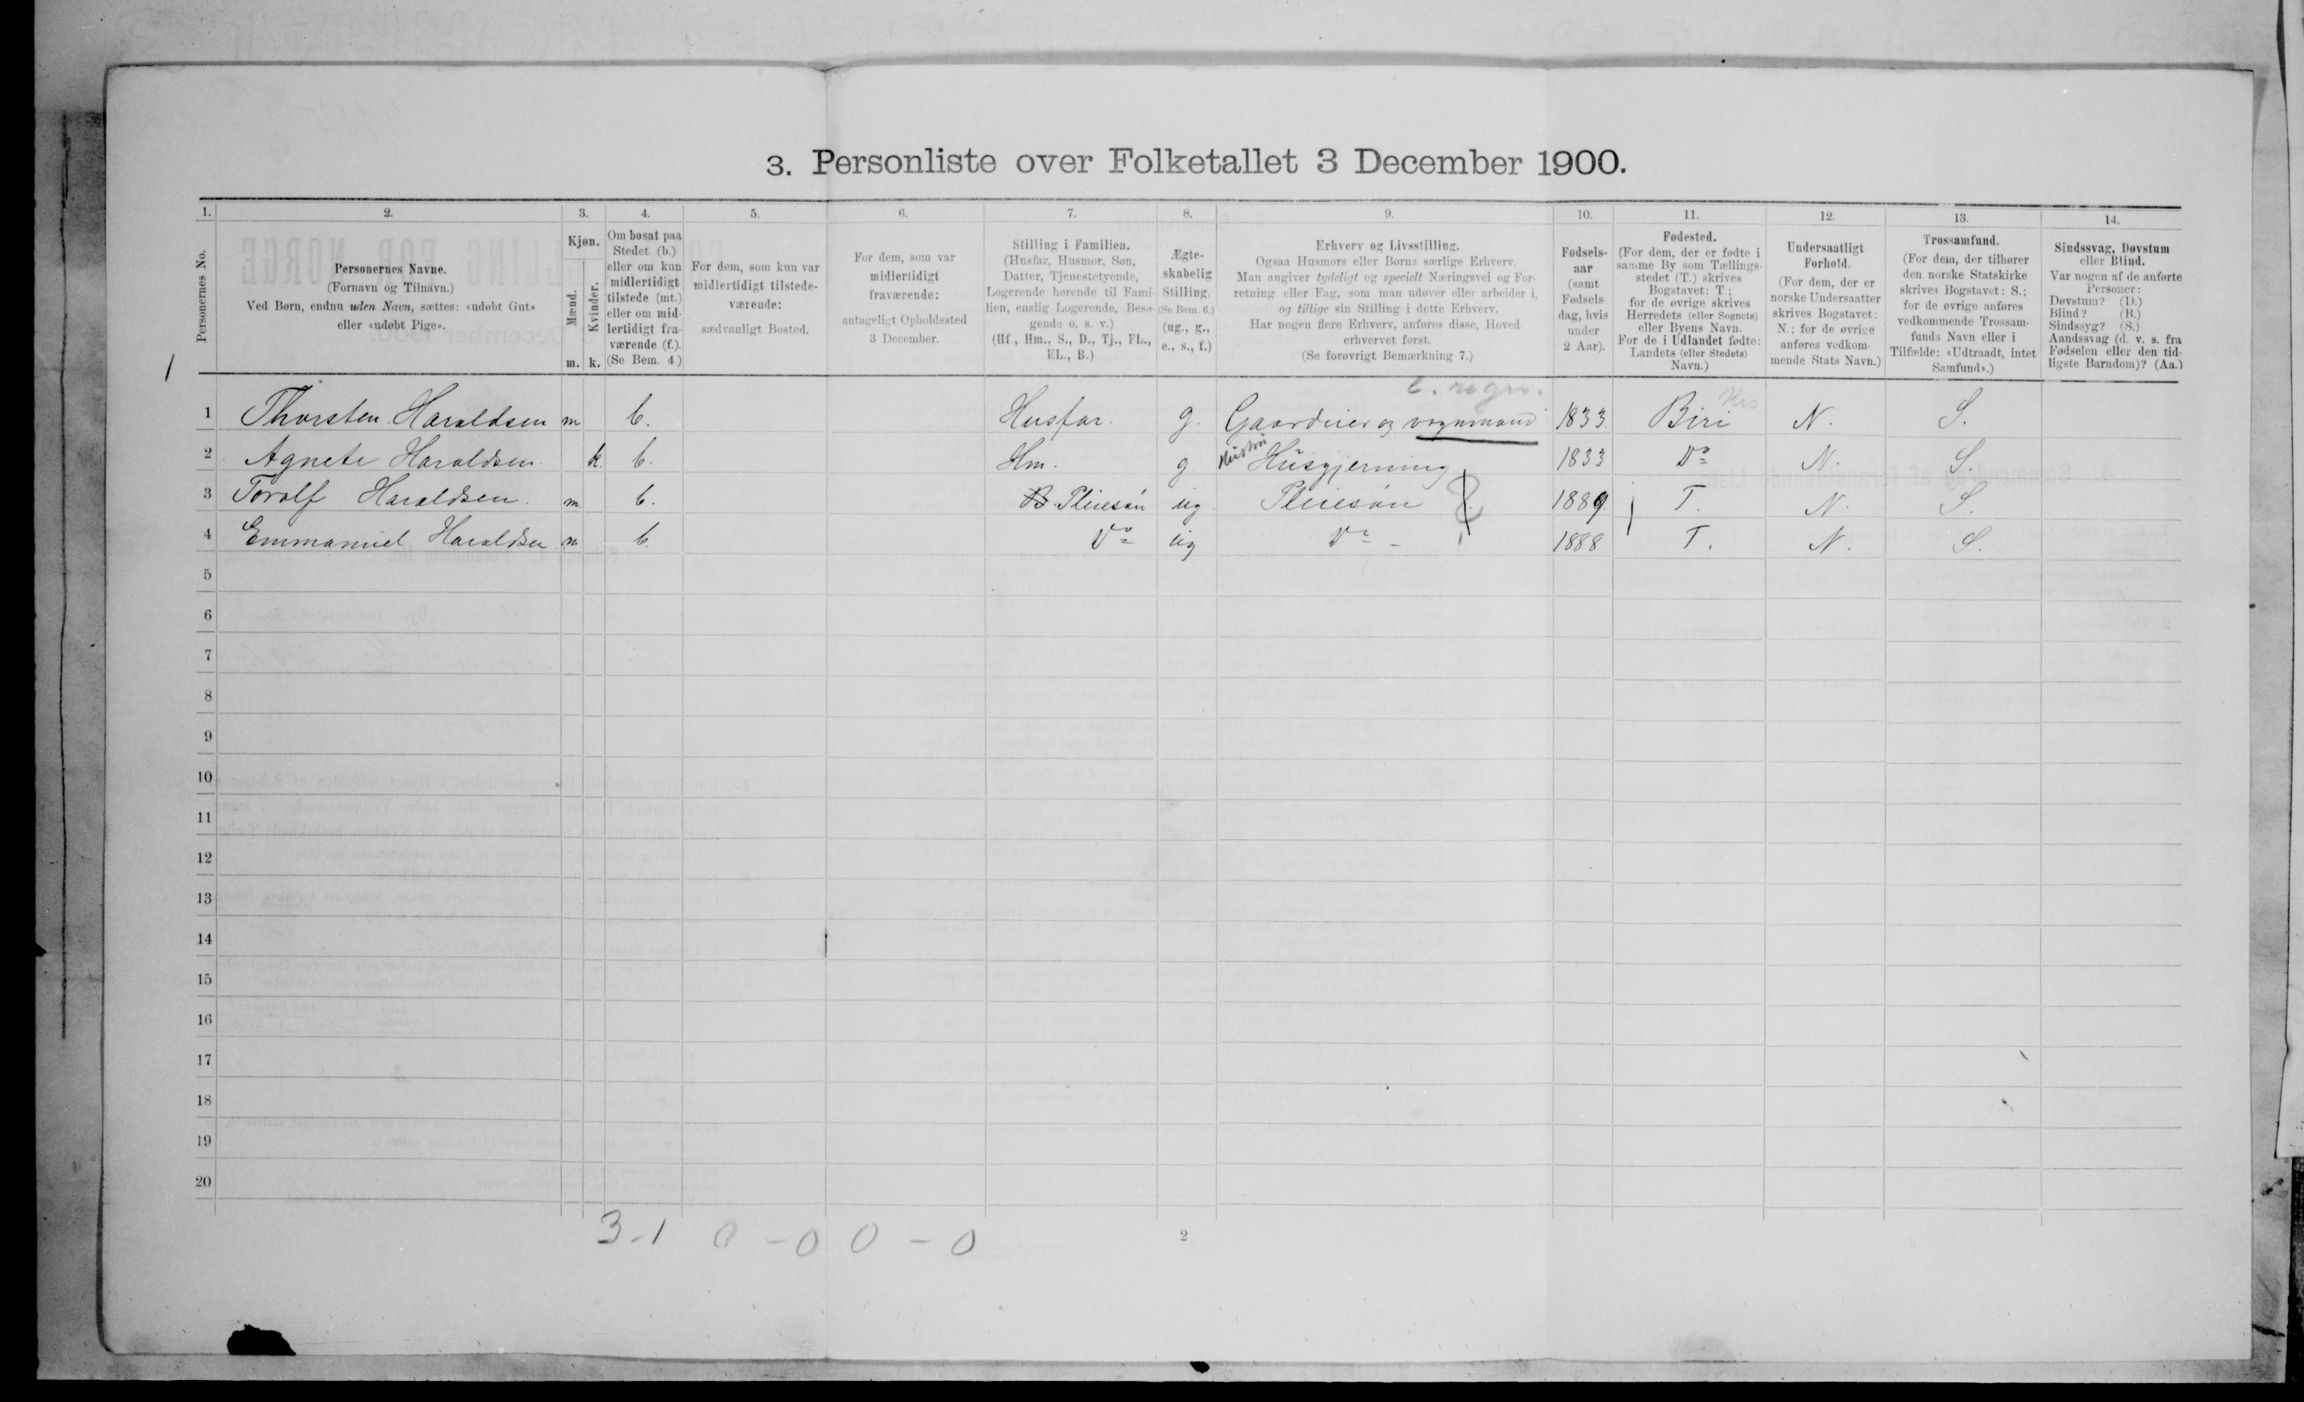 3. Personliste over Folketallet 3 December 1900.
1. 2. 3. 4. 5. 6. 7. 8. 9. 10. 11. 12. 13. 14.
Personernes No.
Personernes Navne.
(Fornavn og Tilnavn.)
Ved Børn, endnu uden Navn, sættes: «udøbt Gut»
eller «udøbt Pige».
Kjøn.
Mænd.
Kvinder.
m. k.
Om bosat paa
Stedet (b.)
eller om kun
midlertidigt
tilstede (mt.)
eller om mid-
lertidigt fra-
værende (f.).
(Se Bem. 4.)
For dem, som kun var
midlertidigt tilstede-
værende:
sædvanligt Bosted.
For dem, som var
midlertidigt
fraværende:
antageligt Opholdssted
3 December.
Stilling i Familien.
(Husfar, Husmor, Søn,
Datter, Tjenestetyende,
Logerende hørende til Fami-
lien, enslig Logerende, Besø-
gende o. s. v.)
(Hf., Hm., S., D., Tj., FL.,
EL., B.)
Ægte-
skabelig
Stilling.
(Se Bem. 6.)
(ug., g.,
e., s., f.)
Erhverv og Livsstilling.
Ogsaa Husmors eller Børns særlige Erhverv.
Man angiver tydeligt og specielt Næringsvei og For-
retning eller Fag, som man udøver eller arbeider i,
og tillige sin Stilling i dette Erhverv.
Har nogen flere Erhverv, anføres disse, Hoved-
erhvervet først.
(Se forøvrigt Bemærkning 7.)
Fødsels-
aar
(samt
Fødsels-
dag, hvis
under
2 Aar).
Fødested.
(For dem, der er fødte i
samme By som Tællings-
stedet (T.) skrives
Bogstavet: T;
for de øvrige skrives
Herredets (eller Sognets)
eller Byens Navn.
For de i Udlandet fødte:
Landets (eller Stedets)
Navn.)
Undersaatligt
Forhold.
(For dem, der er
norske Undersaatter
skrives Bogstavet:
N.; for de øvrige
anføres vedkom-
mende Stats Navn.)
Trossamfund.
(For dem, der tilhører
den norske Statskirke
skrives Bogstavet: S.;
for de øvrige anføres
vedkommende Trossam-
funds Navn eller i
Tilfælde: «Udtraadt, intet
Samfund».)
Sindssvag, Døvstum
eller Blind.
Var nogen af de anførte
Personer:
Døvstum? (D.)
Blind? (B.)
Sindssyg? (S.)
Aandssvag (d. v. s. fra
Fødselen eller den tid-
ligste Barndom)? (Aa.)
1
1 Thorsten Haraldsen m b. Husfar. g. Gaardeier og vognmand 1833 Biri N. S.
2 Agnete Haraldsen. k. b. Hm. g. Hustru Husgjerning 1833 Do N. S.
3 Toralf Haraldsen. m b. Pleiesøn ug Pleiesøn 1889. T. N. S.
4 Emmanuel Haraldsen m b. Do ug Do - 1888 T. N. S.
5
6
7
8
9
10
11
12
13
14
15
16
17
18
19
20
3-1 0-0 0-0
2